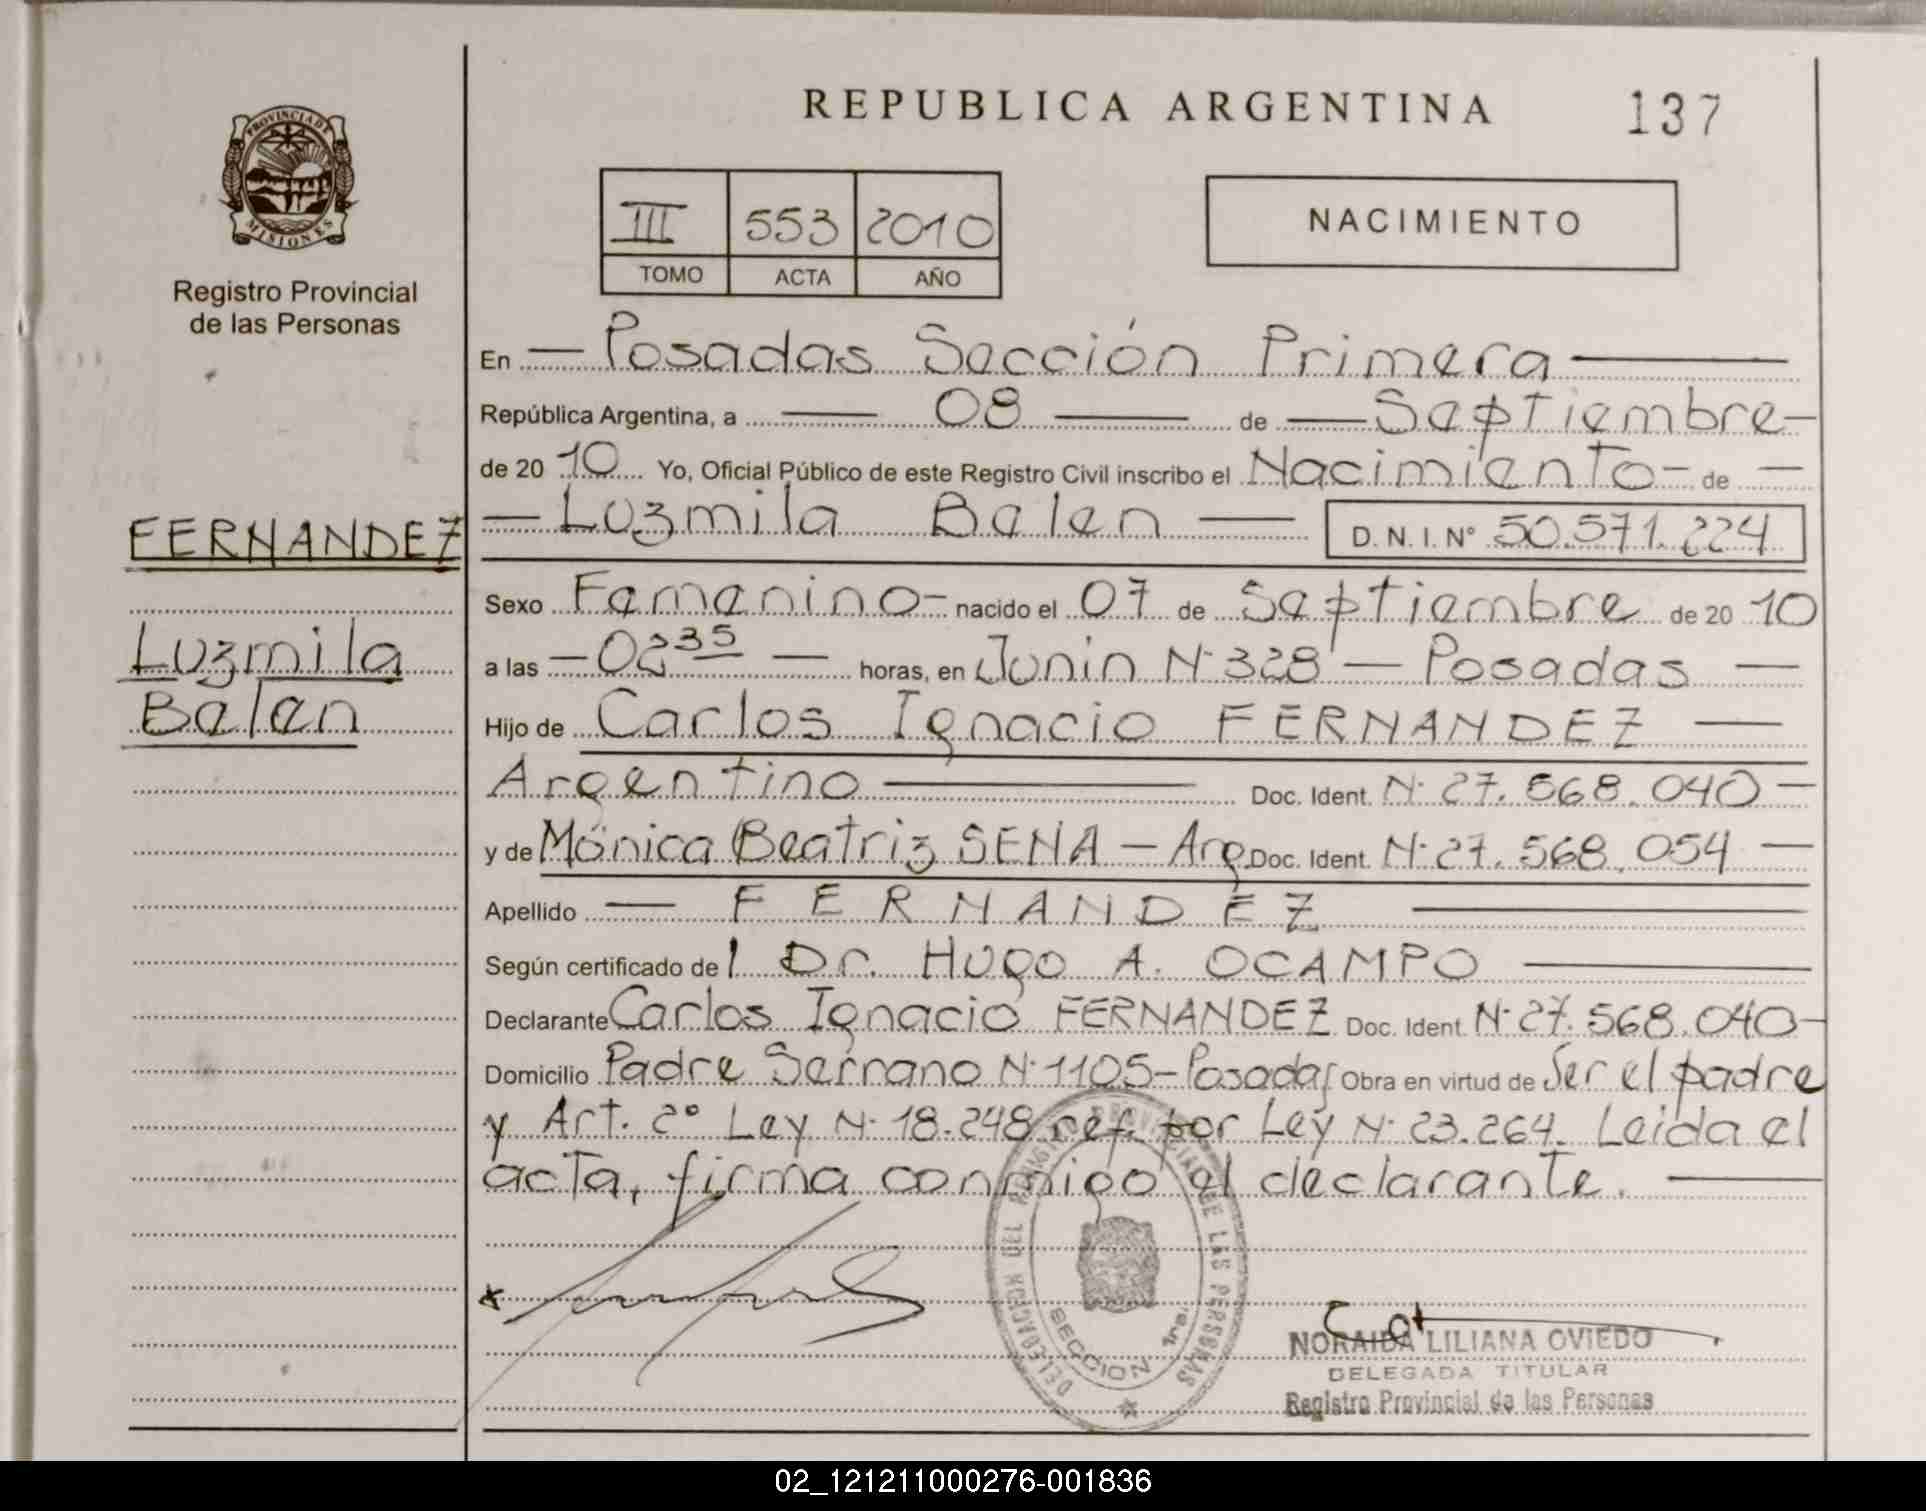 REPUBLICA ARGENTINA
137
PROVINCIA DE
MISIONES
Registro Provincial
de las Personas
III 553 2010
TOMO ACTA AÑO
NACIMIENTO
FERNANDEZ
Luzmila
Belen
En — Posadas Sección Primera —
República Argentina, a — 08 — de — Septiembre —
de 20 10 Yo, Oficial Público de este Registro Civil inscribo el Nacimiento - de —
— Luzmila Belen — D.N.I. Nº 50.571.224
Sexo Femenino - nacido el 07 de Septiembre de 20 10
a las — 02 35 — horas, en Junin Nº 328 — Posadas —
Hijo de Carlos Ignacio FERNANDEZ —
Argentino — Doc. Ident. Nº 27.568.040 —
y de Mónica Beatriz SENA — Arg. Doc. Ident. Nº 27.568.054 —
Apellido — FERNANDEZ —
Según certificado del Dr. Hugo A. OCAMPO —
Declarante Carlos Ignacio FERNANDEZ Doc. Ident. Nº 27.568.040 —
Domicilio Padre Serrano Nº 1105 - Posadas Obra en virtud de Ser el padre
y Art. 2º Ley Nº 18.248 ref. por Ley Nº 23.264. Leida el
acta, firma conmigo el declarante. —
DELEGACION DEL REGISTRO PROVINCIAL DE LAS PERSONAS
SECCION 1ra.
NORAIDA LILIANA OVIEDO
DELEGADA TITULAR
Registro Provincial de las Personas
02_121211000276-001836